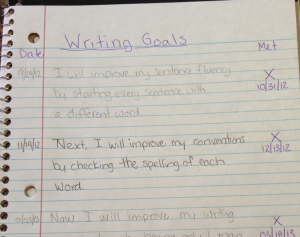 Writing Goals
Date Met
9/09/12 I will improve my sentence fluency X
by starting every sentence with 10/31/12
a different word
11/19/12 Next, I will improve my conventions X
by checking the spelling of each 12/13/12
word.
Now I will improve my writing X
03/18/13